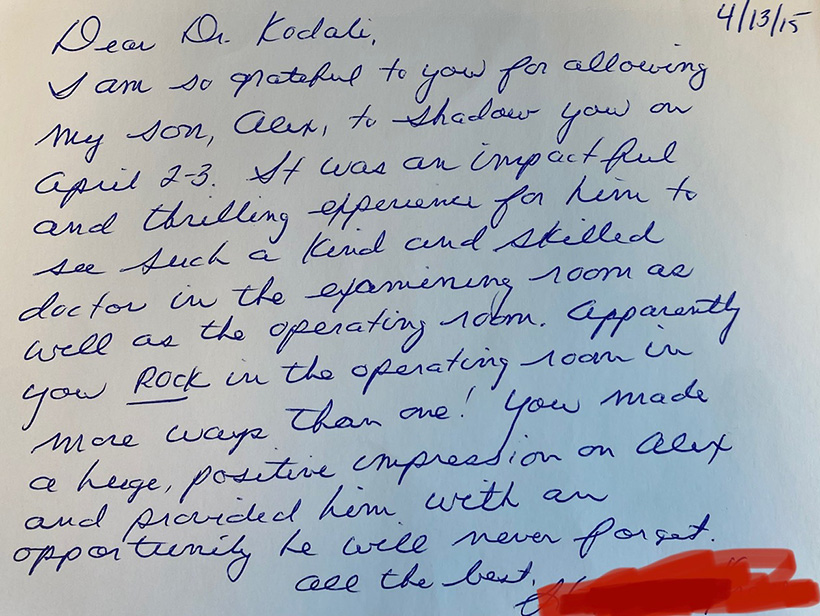 4/13/15
Dear Dr. Kodali,
I am so grateful to you for allowing
my son, Alex, to shadow you on
April 2-3. It was an impactful
and thrilling experience for him to
see such a kind and skilled
doctor in the examining room as
well as the operating room. Apparently
you ROCK in the operating room in
more ways than one! You made
a huge, positive impression on Alex
and provided him with an
opportunity he will never forget.
All the best,